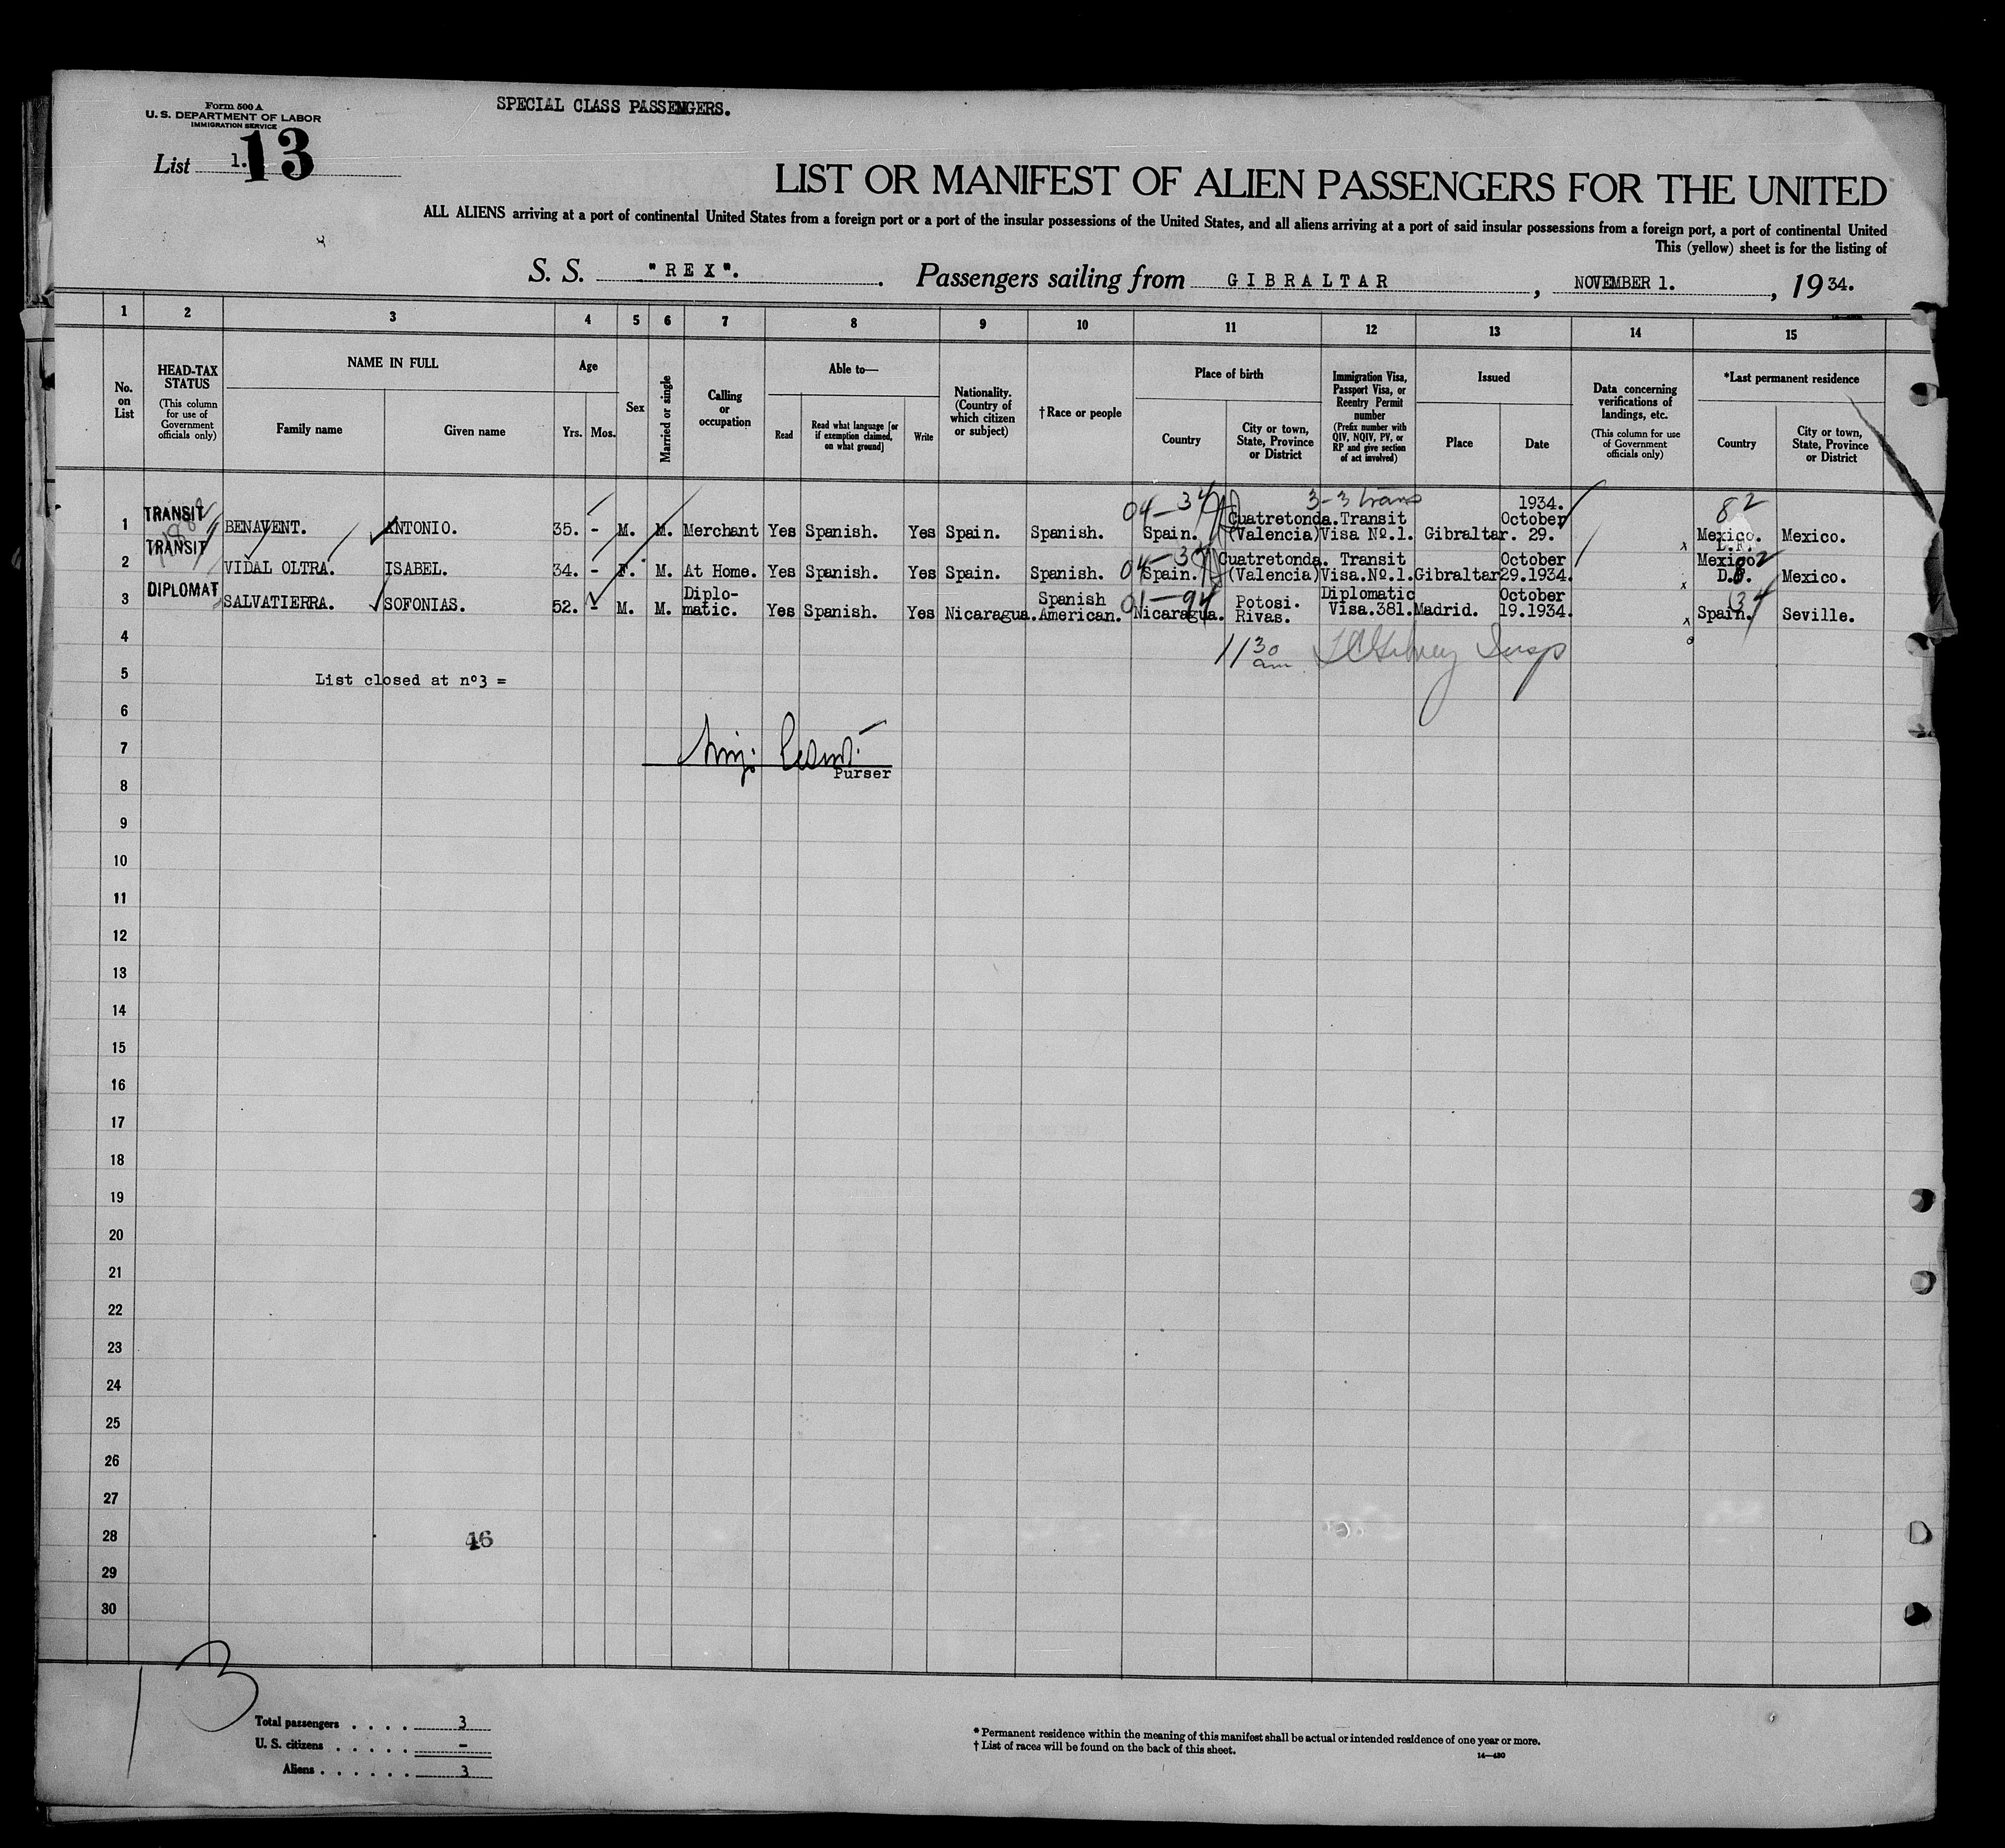 Form 500 A
U. S. DEPARTMENT OF LABOR
IMMIGRATION SERVICE
SPECIAL CLASS PASSENGERS.
List 1. 13
LIST OR MANIFEST OF ALIEN PASSENGERS FOR THE UNITED
ALL ALIENS arriving at a port of continental United States from a foreign port or a port of the insular possessions of the United States, and all aliens arriving at a port of said insular possessions from a foreign port, a port of continental United
This (yellow) sheet is for the listing of
S. S. "REX". Passengers sailing from GIBRALTAR, NOVEMBER 1., 1934.
1 2 3 4 5 6 7 8 9 10 11 12 13 14 15
No. on List
HEAD-TAX STATUS (This column for use of Government officials only)
NAME IN FULL
Family name Given name
Age
Yrs. Mos.
Sex
Married or single
Calling or occupation
Able to—
Read Read what language [or if exemption claimed, on what ground] Write
Nationality. (Country of which citizen or subject)
†Race or people
Place of birth
Country City or town, State, Province or District
Immigration Visa, Passport Visa, or Reentry Permit number (Prefix number with QIV, NQIV, PV, or RP and give section of act involved)
Issued
Place Date
Data concerning verifications of landings, etc. (This column for use of Government officials only)
*Last permanent residence
Country City or town, State, Province or District
04-34 3-3 trans 82
1 TRANSIT BENAVENT. ANTONIO. 35. - M. M. Merchant Yes Spanish. Yes Spain. Spanish. Spain. Cuatretonda. (Valencia) Transit Visa Nº.1. Gibraltar. 1934. October 29. Mexico. D.F. Mexico.
04-34
2 TRANSIT VIDAL OLTRA. ISABEL. 34. - F. M. At Home. Yes Spanish. Yes Spain. Spanish. Spain. Cuatretonda. (Valencia) Transit Visa.Nº.1. Gibraltar October 29.1934. x Mexico D.F. Mexico.
01-94
3 DIPLOMAT SALVATIERRA. SOFONIAS. 52. - M. M. Diplomatic. Yes Spanish. Yes Nicaragua. Spanish American. Nicaragua. Potosi. Rivas. Diplomatic Visa.381. Madrid. October 19.1934. x Spain. Seville.
4
11 30 am Insp
5 List closed at nº3 =
6
7
Purser
8
9
10
11
12
13
14
15
16
17
18
19
20
21
22
23
24
25
26
27
28 46
29
30
13
Total passengers . . . . 3
U. S. citizens . . . . . -
Aliens . . . . . . 3
* Permanent residence within the meaning of this manifest shall be actual or intended residence of one year or more.
† List of races will be found on the back of this sheet.
14—430